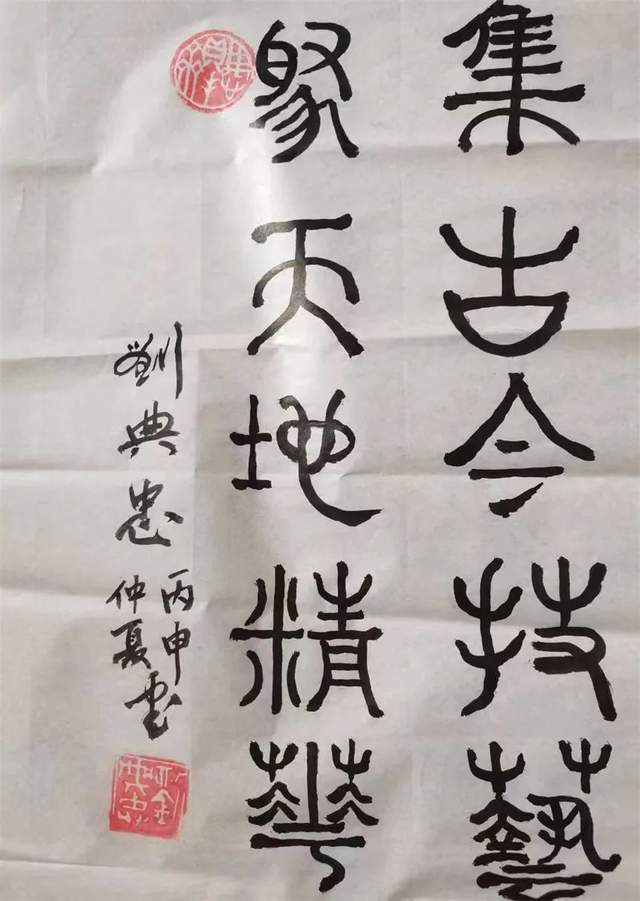 集古今技藝
聚天地精華
丙申仲夏書
劉典忠